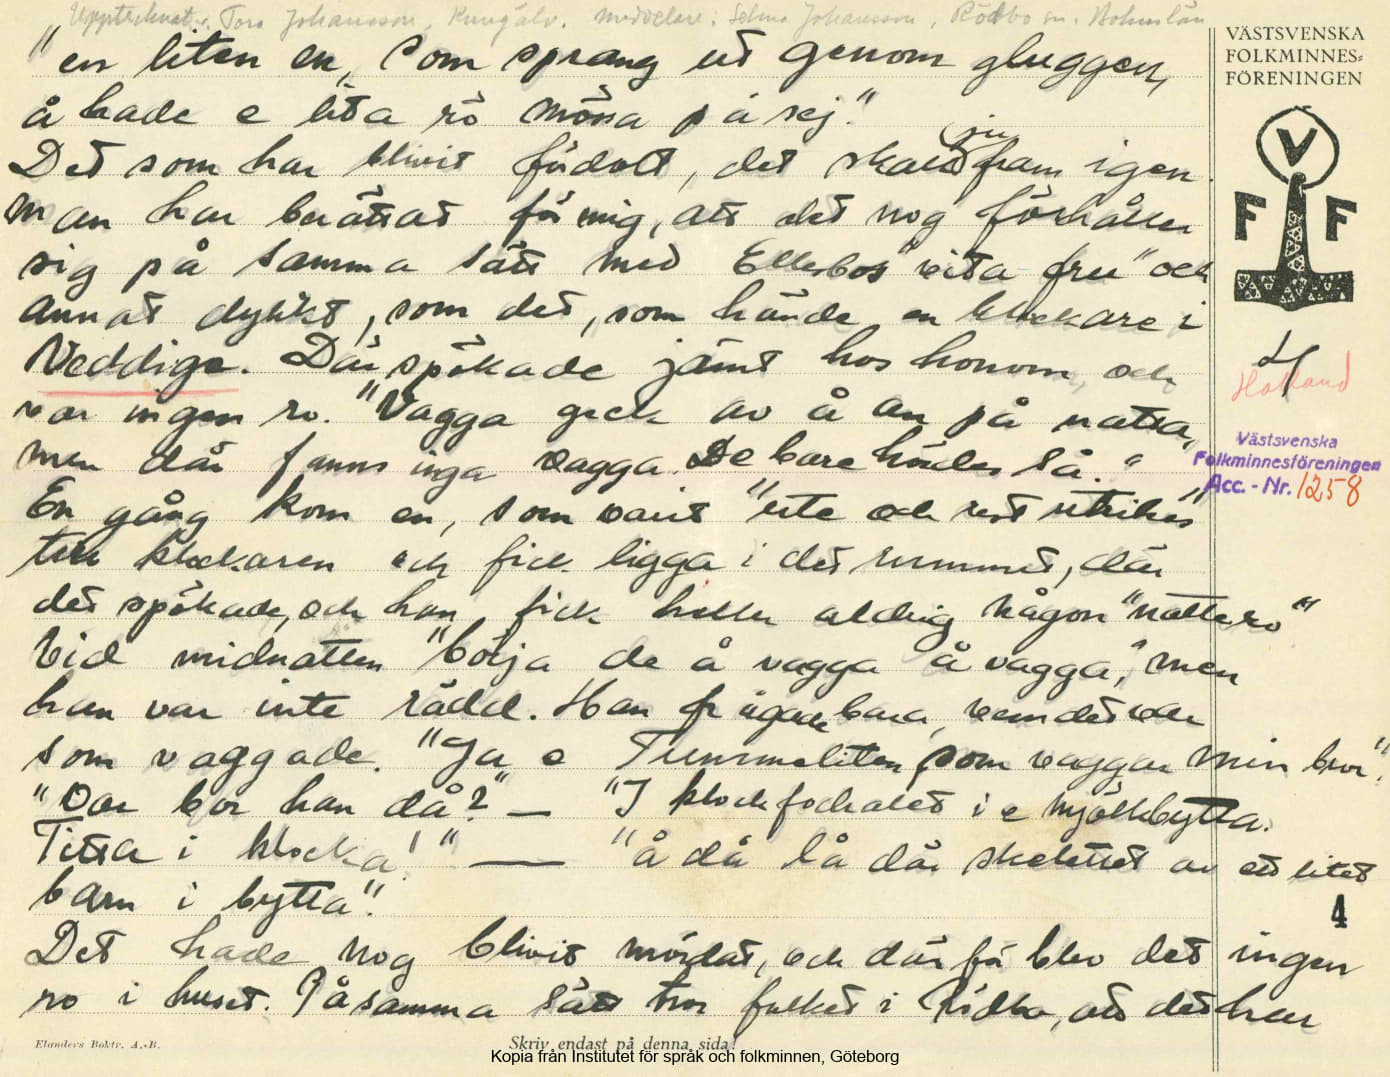 Upptecknat: Tora Johansson, Kungälv. Meddelare: Selma Johansson, Rödbo sn. Bohuslän
VÄSTSVENSKA
FOLKMINNES-
FÖRENINGEN
V
F F
"en liten en, som sprang ut genom gluggen,
å hade e lita rö mössa på sej."
Det som har blivit fördolt, det skall ju fram igen.
Man har berättat för mig, att det nog förhåller
sig på samma sätt med Ellesbos "vita fru" och
annat dylikt, som det, som hände en klockare i
Veddige. Där spökade jämt hos honom, och
var ingen ro. "Vagga geck av å an på natta,
men där fanns inga vagga. De bare hördes så."
En gång kom en, som varit "ute och rest utrikes"
till klockaren och fick ligga i det rummet, där
det spökade, och han fick heller aldrig någon "nattero"
Vid midnatten "börja de å vagga å vagga," men
han var inte rädd. Han frågade bara, vem det var
som vaggade. "Ja e Tummeliten, som vaggar min bror".
"Var bor han då?" — "I klockfodralet i e mjölkbytta.
Titta i klocka!" — "å då lå där skelettet av ett litet
barn i bytta".
Det hade nog blivit mördat, och därför blev det ingen
ro i huset. På samma sätt tror folket i Rödbo, att det har
H
Halland
Västsvenska
Folkminnesföreningen
Acc. - Nr. 1258
4
Elanders Boktr. A.-B.
Skriv endast på denna sida!
Kopia från Institutet för språk och folkminnen, Göteborg